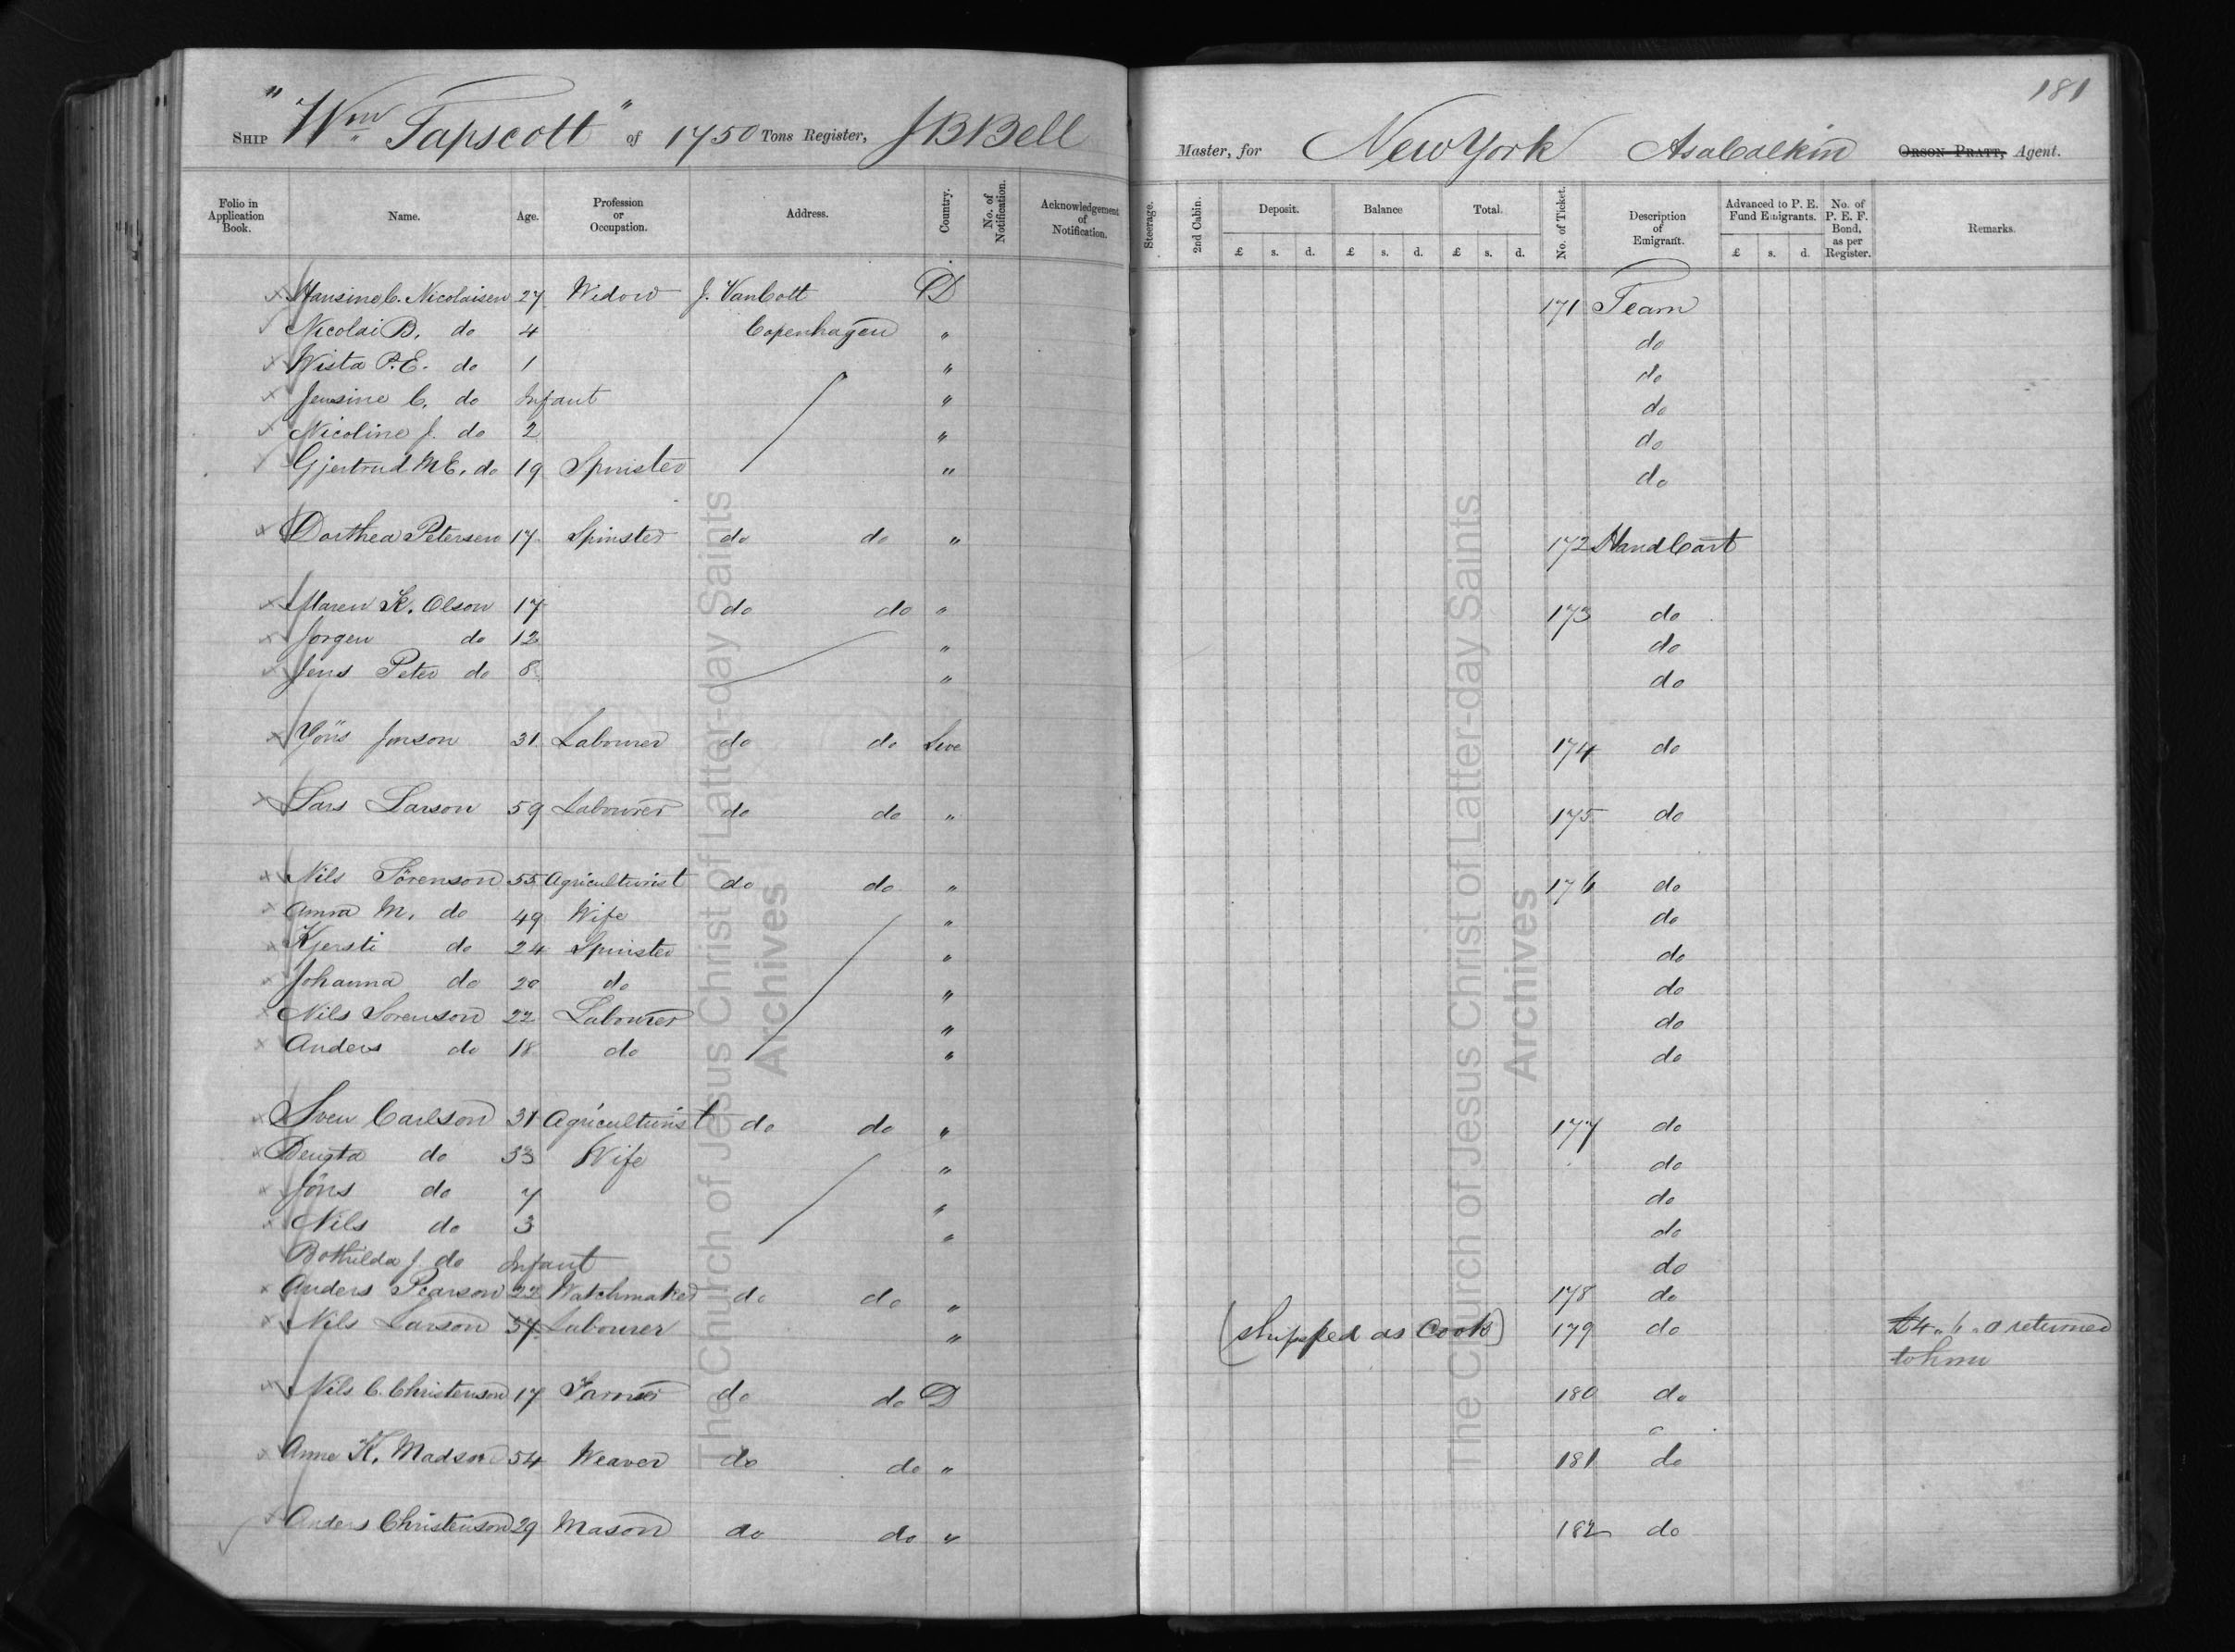 181
SHIP "Wm Tapscott" of 1750 Tons Register, J B Bell Master, for New York Asa Calkin ORSON PRATT, Agent.
Folio in Application Book. Name. Age. Profession or Occupation. Address. Country. No. of Notification. Acknowledgement of Notification. Steerage. 2nd Cabin. Deposit. Balance Total. No. of Ticket. Description of Emigrant. Advanced to P. E. Fund Emigrants. No. of P. E. F. Bond, as per Register. Remarks.
£ s. d. £ s. d. £ s. d. £ s. d.
Hansine C. Nicolaisen 27 Widow J. VanCott D 171 Team
Nicolai B. do 4 Copenhagen " do
Wista P.E. do 1 " do
Jensine C. do Infant " do
Nicoline J. do 2 " do
Gjertrud M E. do 19 Spinster " do
Dorthea Petersen 17 Spinster do do " 172 Hand Cart
Maren K. Olson 17 do do " 173 do
Jorgen do 12 " do
Jens Peter do 8 " do
Yöns Jonson 31 Labourer do do Swe 174 do
Lars Larson 59 Labourer do do " 175 do
Nils Sörenson 55 Agriculturist do do " 176 do
Anna M. do 49 Wife " do
Kjersti do 24 Spinster " do
Johanna do 20 do " do
Nils Sorenson 22 Labourer " do
Anders do 18 do " do
Sven Carlson 31 Agriculturist do do " 177 do
Bengta do 33 Wife " do
Jöns do 7 " do
Nils do 3 " do
Bothilda J. do Infant do
Anders Pearson 22 Watchmaker do do " 178 do
Nils Larson 57 Labourer " (shipped as Cook) 179 do £4 " 6 " 0 returned
to him
Nils C. Christenson 17 Farmer do do D 180 do
Anne K. Madson 54 Weaver do do " 181 do
Anders Christenson 29 Mason do do " 182 do
The Church of Jesus Christ of Latter-day Saints
Archives
The Church of Jesus Christ of Latter-day Saints
Archives